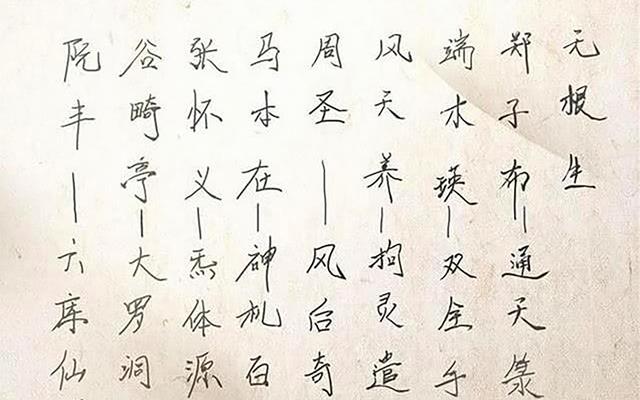 无根生
郑子布—通天箓
端木瑛—双全手
风天养—拘灵遣
周圣—风后奇
马本在—神机百
张怀义—炁体源
谷畸亭—大罗洞
阮丰—六库仙